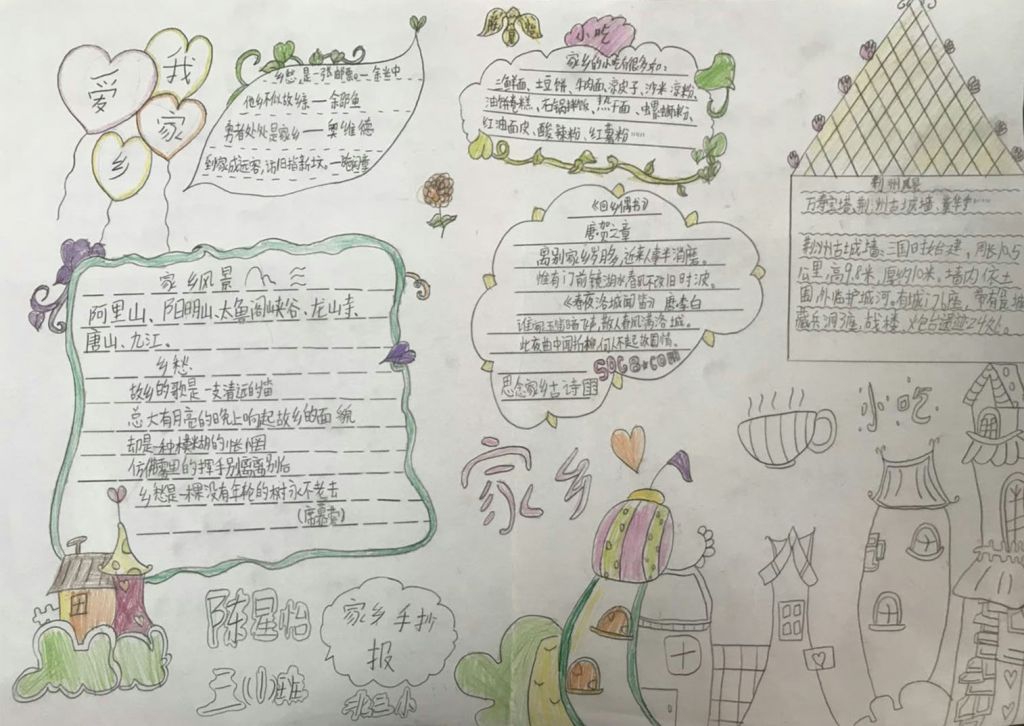 我
爱
家
乡
乡愁,是一张邮票。一余光中
他乡不似故乡亲一
勇者处处是家乡一奥维德
小吃
家乡的小吃有很多如:
三鲜面、土豆饼、牛肉面、凉皮子、沙米凉粉、
石锅拌饭、热干面、
红油面皮、酸辣粉、红薯粉……
《回乡偶书》
唐贺之章
离别家乡岁月多,近来人事半消磨。
惟有门前镜湖水春风不改旧时波。
《春夜洛城闻笛》唐·李白
谁家玉笛暗飞声,散入春风满洛城。
此夜曲中闻折柳何人不起故园情。
思念家乡古诗
荆州风景
万寿宝塔、荆州古城墙、章华寺……
荆州古城墙:三国时始建,周长10.5
公里,高9.8米,厚约10米。墙内依土
围,外临护城河。有城门
藏兵洞
战楼、炮台遗迹
家乡风景
阿里山、阳明山、太鲁阁峡谷、龙山寺、
唐山、九江。
乡愁
故乡的歌是一支清远的笛
总大有月亮的晚上响起故乡的面貌
却是一种模糊的怅惘
仿佛雾里的挥手别离
乡愁是一棵没有年轮的树永不老去
(席慕容)
家乡
小吃
陈星怡
三(1)班
家乡手抄
报
北三小